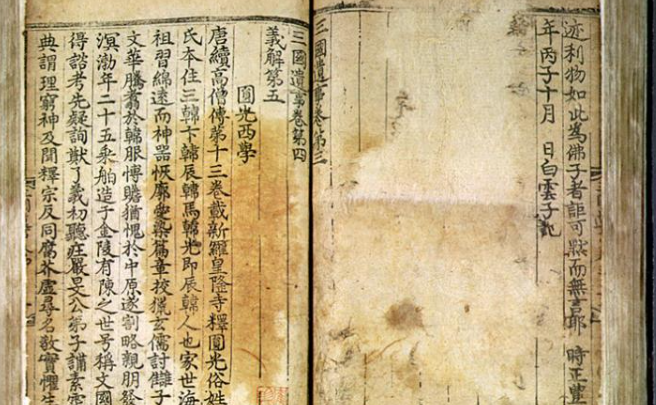 迹利物如此爲佛子者詎可黙而無言耶 時正豊
年丙子十月 日白雲子記
三國遺事卷第三
三國遺事卷第四
義解第五
圓光西學
唐續高僧傳第十三卷載新羅皇隆寺釋圓光俗姓
氏本住三韓卞韓辰韓馬韓光即辰韓人也家世海
祖習綿遠而神器恢廓愛染篇章校獵玄儒討讎子
文華騰翥於韓服博贍猶愧於中原遂割略親朋發
溟渤年二十五乘舶造于金陵有陳之世号稱文國
得諮考先疑詢猷了義初聽莊嚴旻公弟子講素霑
典謂理窮神及聞釋宗反同腐芥虛尋名教實懼生